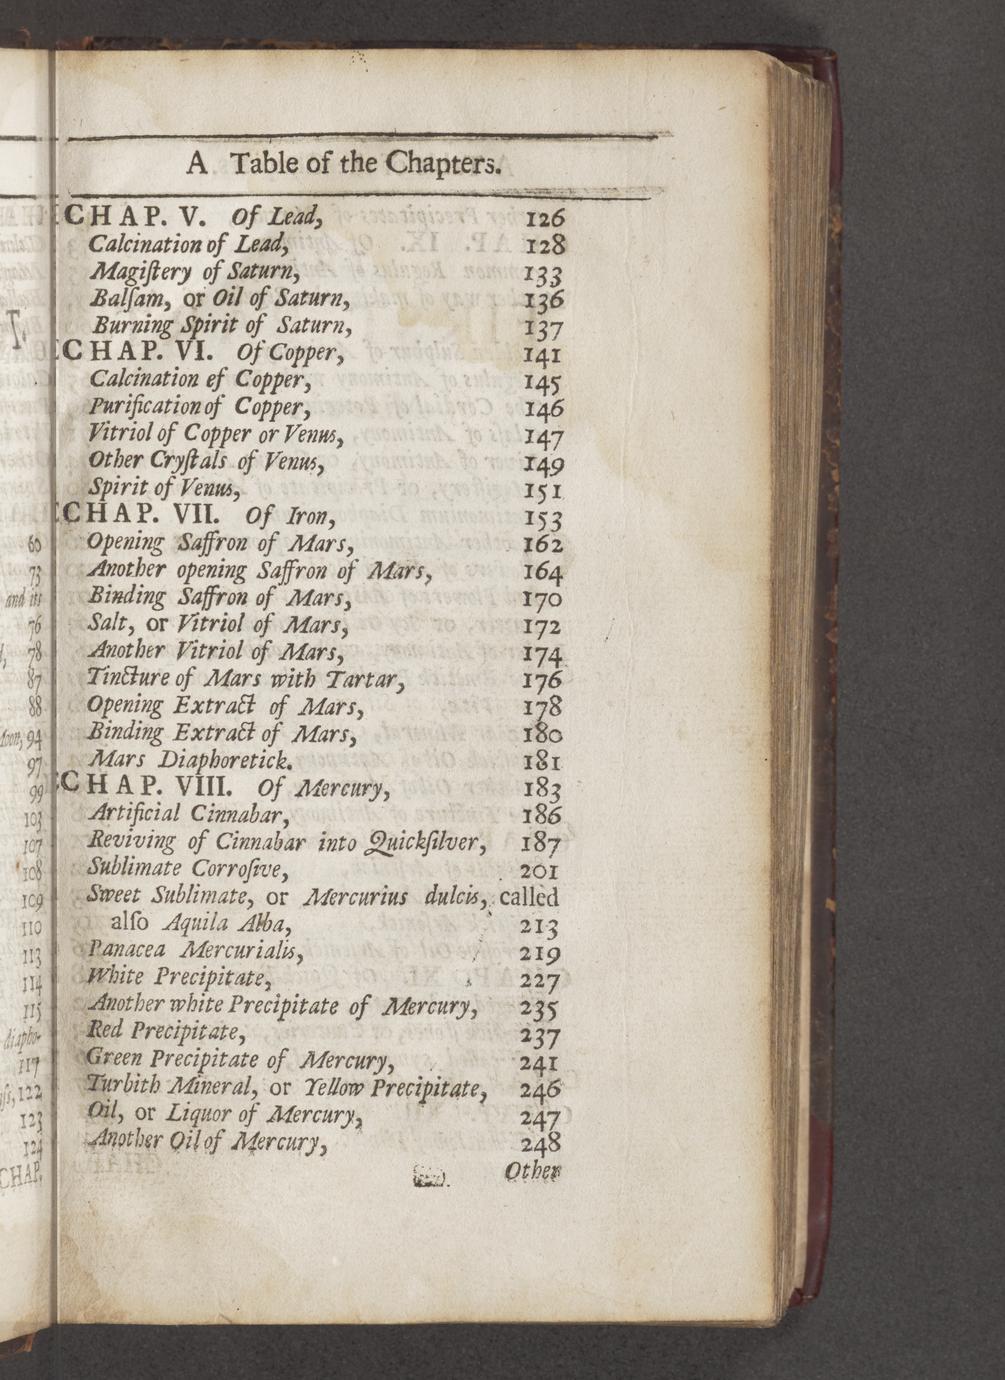 A Table of the Chapters.
CHAP. V. Of Lead, 126
Calcination of Lead, 128
Magiſtery of Saturn, 133
Balſam, or Oil of Saturn, 136
Burning Spirit of Saturn, 137
CHAP. VI. Of Copper, 141
Calcination ef Copper, 145
Purification of Copper, 146
Vitriol of Copper or Venus, 147
Other Cryſtals of Venus, 149
Spirit of Venus, 151
CHAP. VII. Of Iron, 153
Opening Saffron of Mars, 162
Another opening Saffron of Mars, 164
Binding Saffron of Mars, 170
Salt, or Vitriol of Mars, 172
Another Vitriol of Mars, 174
Tincture of Mars with Tartar, 176
Opening Extract of Mars, 178
Binding Extract of Mars, 180
Mars Diaphoretick. 181
CHAP. VIII. Of Mercury, 183
Artificial Cinnabar, 186
Reviving of Cinnabar into Quickſilver, 187
Sublimate Corroſive, 201
Sweet Sublimate, or Mercurius dulcis, called
alſo Aquila Alba, 213
Panacea Mercurialis, 219
White Precipitate, 227
Another white Precipitate of Mercury, 235
Red Precipitate, 237
Green Precipitate of Mercury, 241
Turbith Mineral, or Yellow Precipitate, 246
Oil, or Liquor of Mercury, 247
Another Oil of Mercury, 248
Other
60
73
and its
76
78
87
88
94
97
99
103
107
108
109
110
113
114
115
diapho-
117
122
123
124
CHAP.